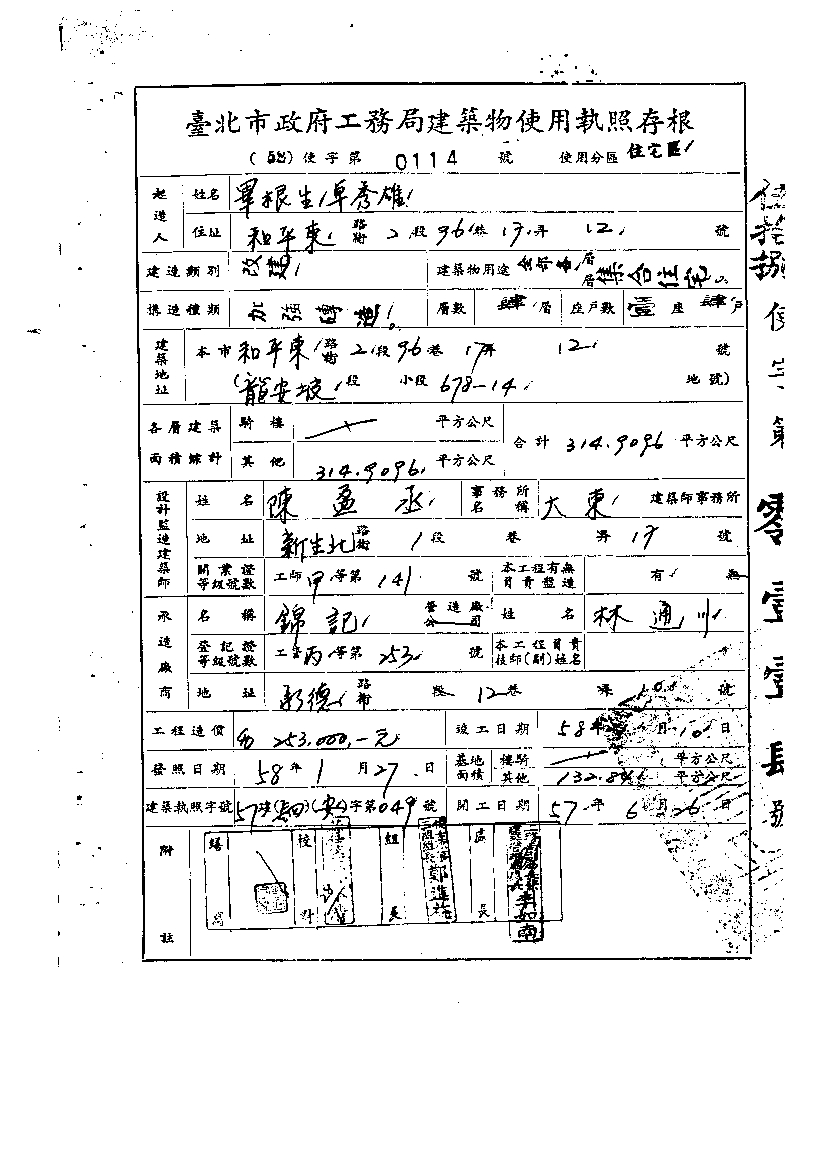 臺北市政府工務局建築物使用執照存根
(58)使字第 0114 號 使用分區 住宅區
起造人 姓名 畢根生 卓秀雄
住址 和平東路 2段 96巷 17弄 12 號
建造類別 改建 建築物用途 全部各層 集合住宅
構造種類 加強磚造 層數 肆層 座戶數 壹座 肆戶
建築地址 本市 和平東路 2段 96巷 17弄 12 號
(龍安坡段 小段 678-14 地號)
各層建築面積總計 騎樓 平方公尺 合計 314.9096 平方公尺
其他 314.9096 平方公尺
設計監造建築師 姓名 陳盈丞 事務所名稱 大東 建築師事務所
地址 新生北路 1段 巷 弄 17 號
開業證等級號數 工師甲等第 141 號 本工程有無負責監造 有 無
承造廠商 名稱 錦記 營造廠公司 姓名 林通川
登記證等級號數 工營丙等第 253 號 本工程負責技師(副)姓名
地址 承德路 段 12巷 10 號
工程造價 253,000,-元 竣工日期 58年 月 10日
發照日期 58年 1月 27日 基地面積 騎樓 平方公尺
其他 平方公尺
建築執照字號 字第049號 開工日期 57年 6月 26日
附註 繕寫 校對 組長 處長
李如南
伍拾捌使字第零壹壹肆號